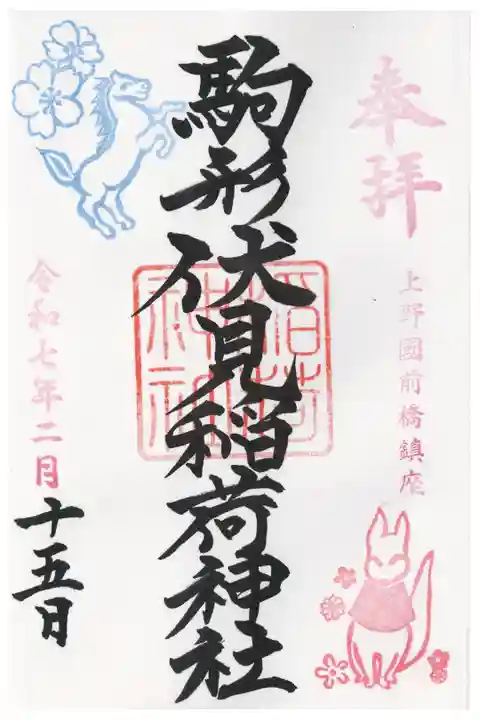 奉拝
上野國前橋鎮座
駒形伏見稲荷神社
稲荷
神社
令和七年二月十五日